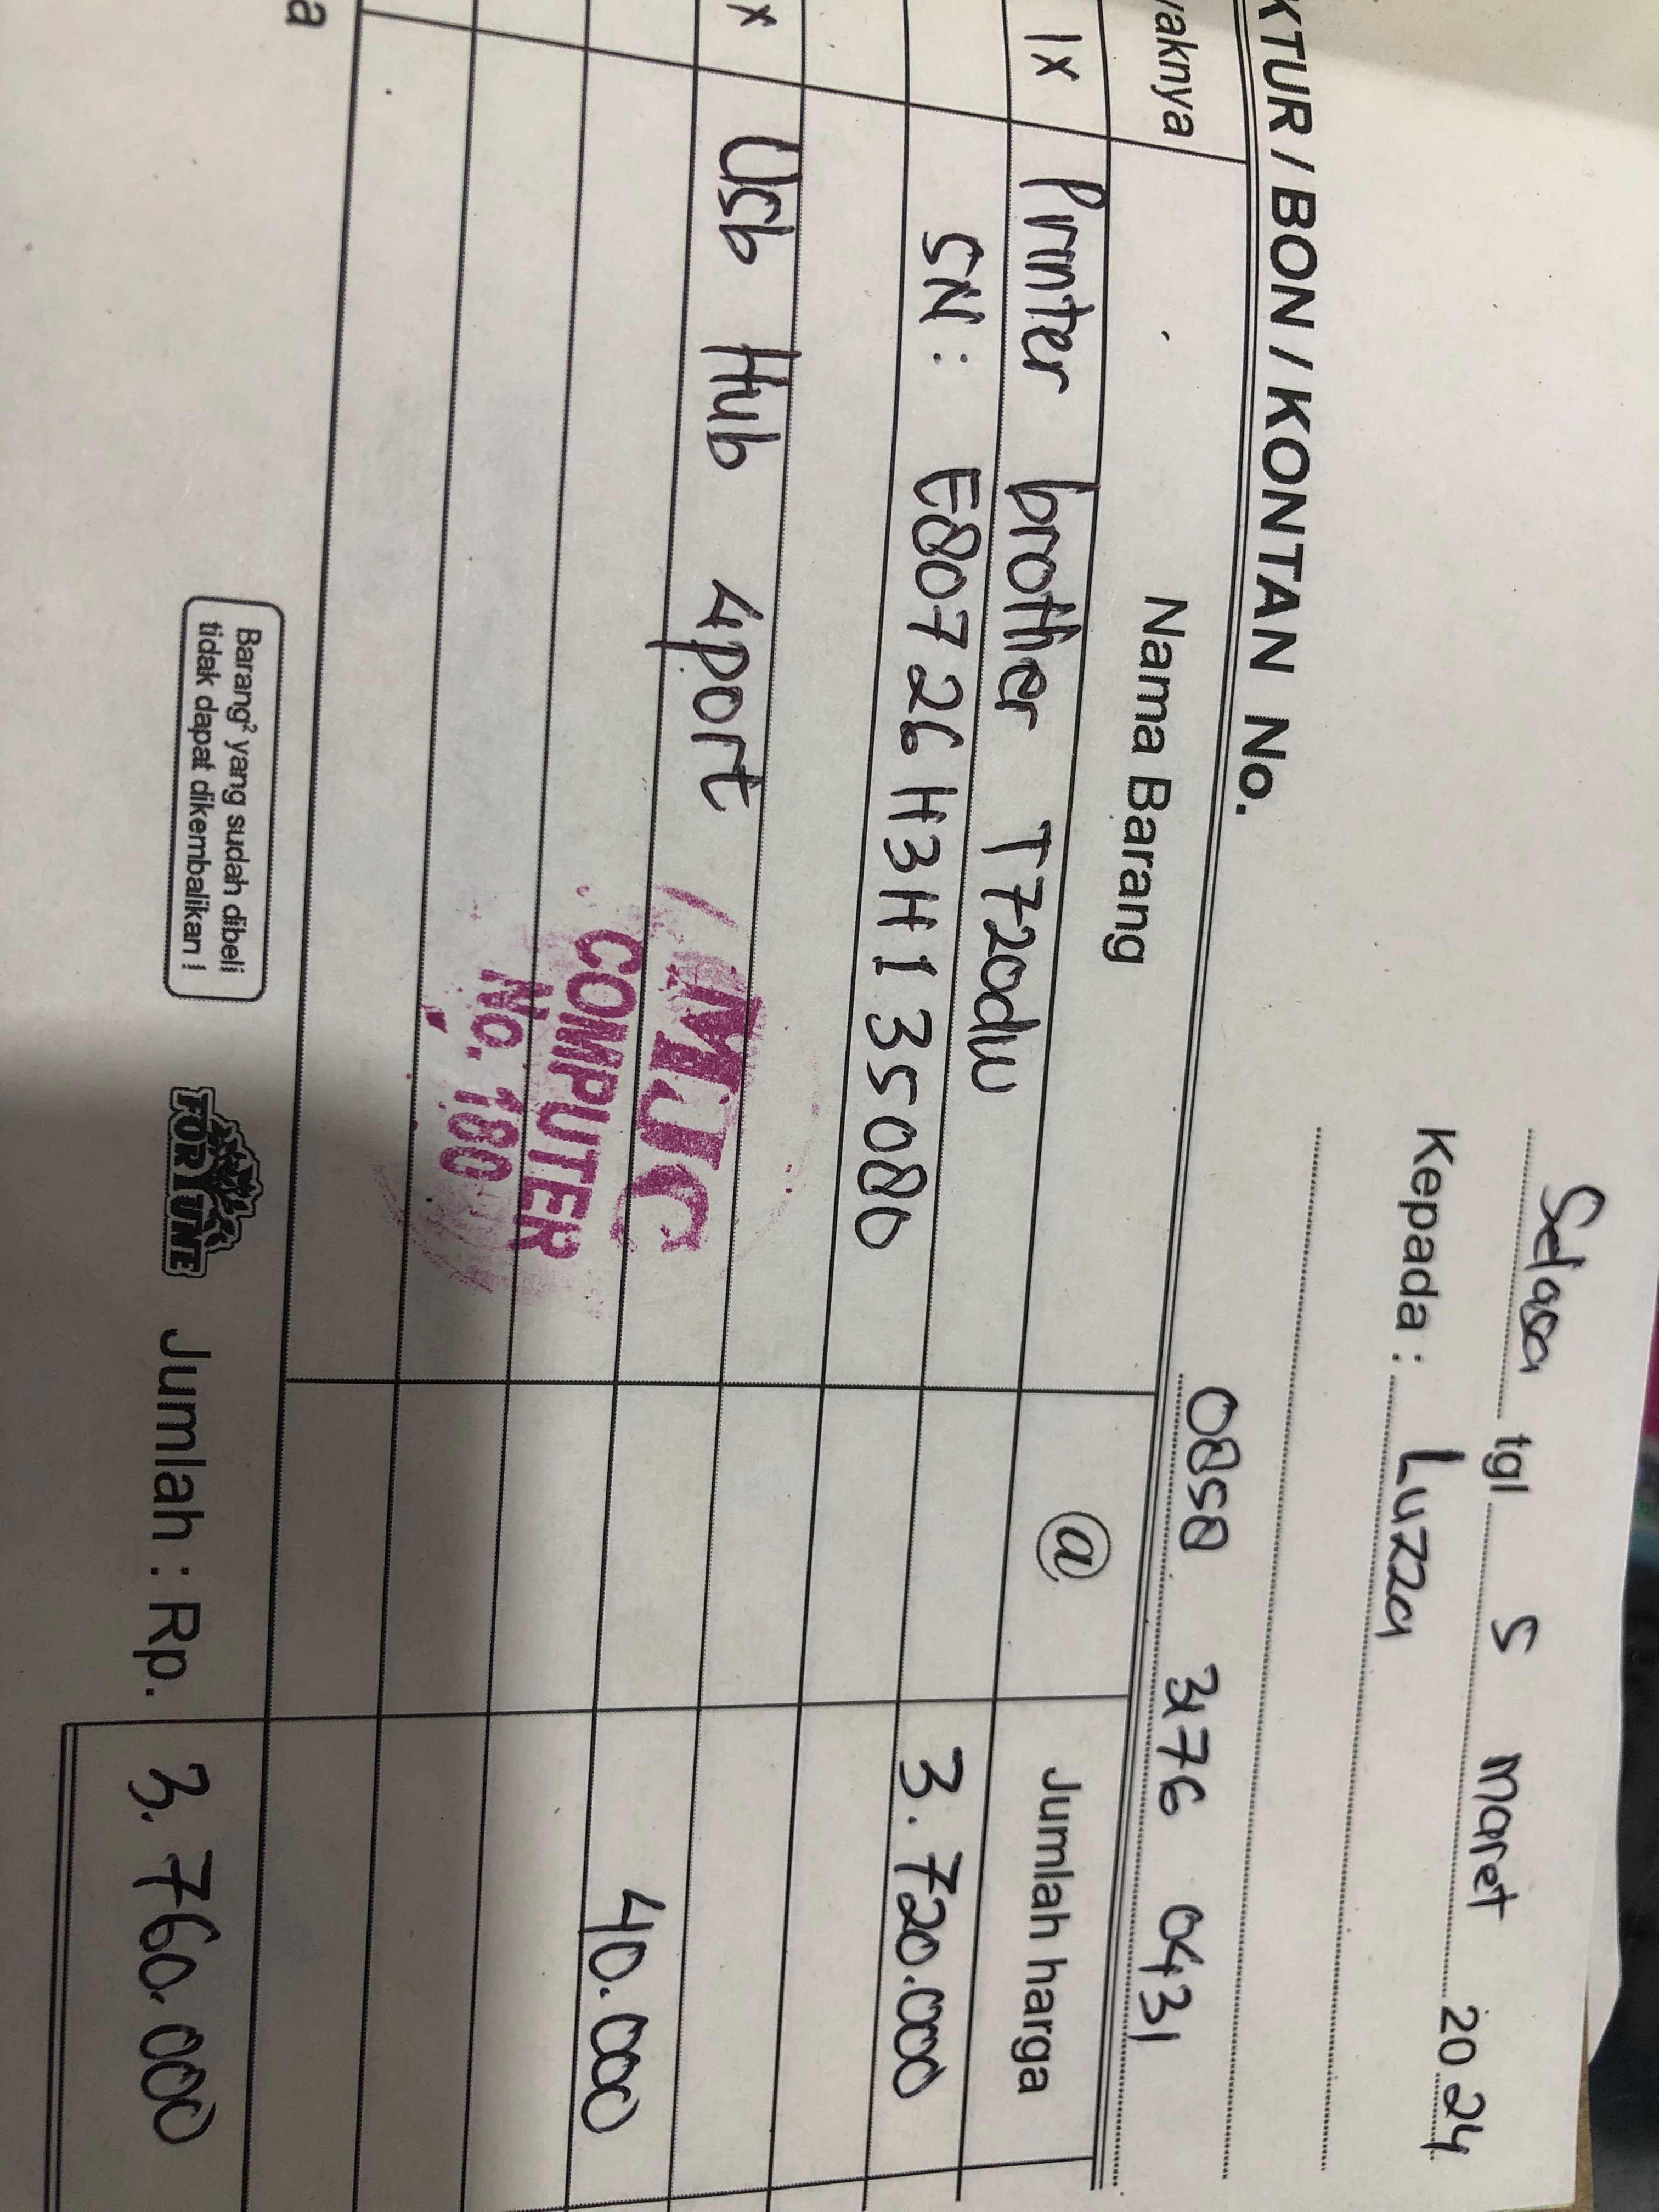 Selasa tgl 5 maret 2024
Kepada : Luzza
KTUR / BON / KONTAN No.
0858 3176 0431
yaknya Nama Barang @ Jumlah harga
1x Printer brother T720dw
SN : E80726H3H135080 3.720.000
x Usb Hub 4port
40.000
MJC
COMPUTER
No. 180
a
Barang² yang sudah dibeli
tidak dapat dikembalikan !
FORTUNE
Jumlah : Rp. 3.760.000